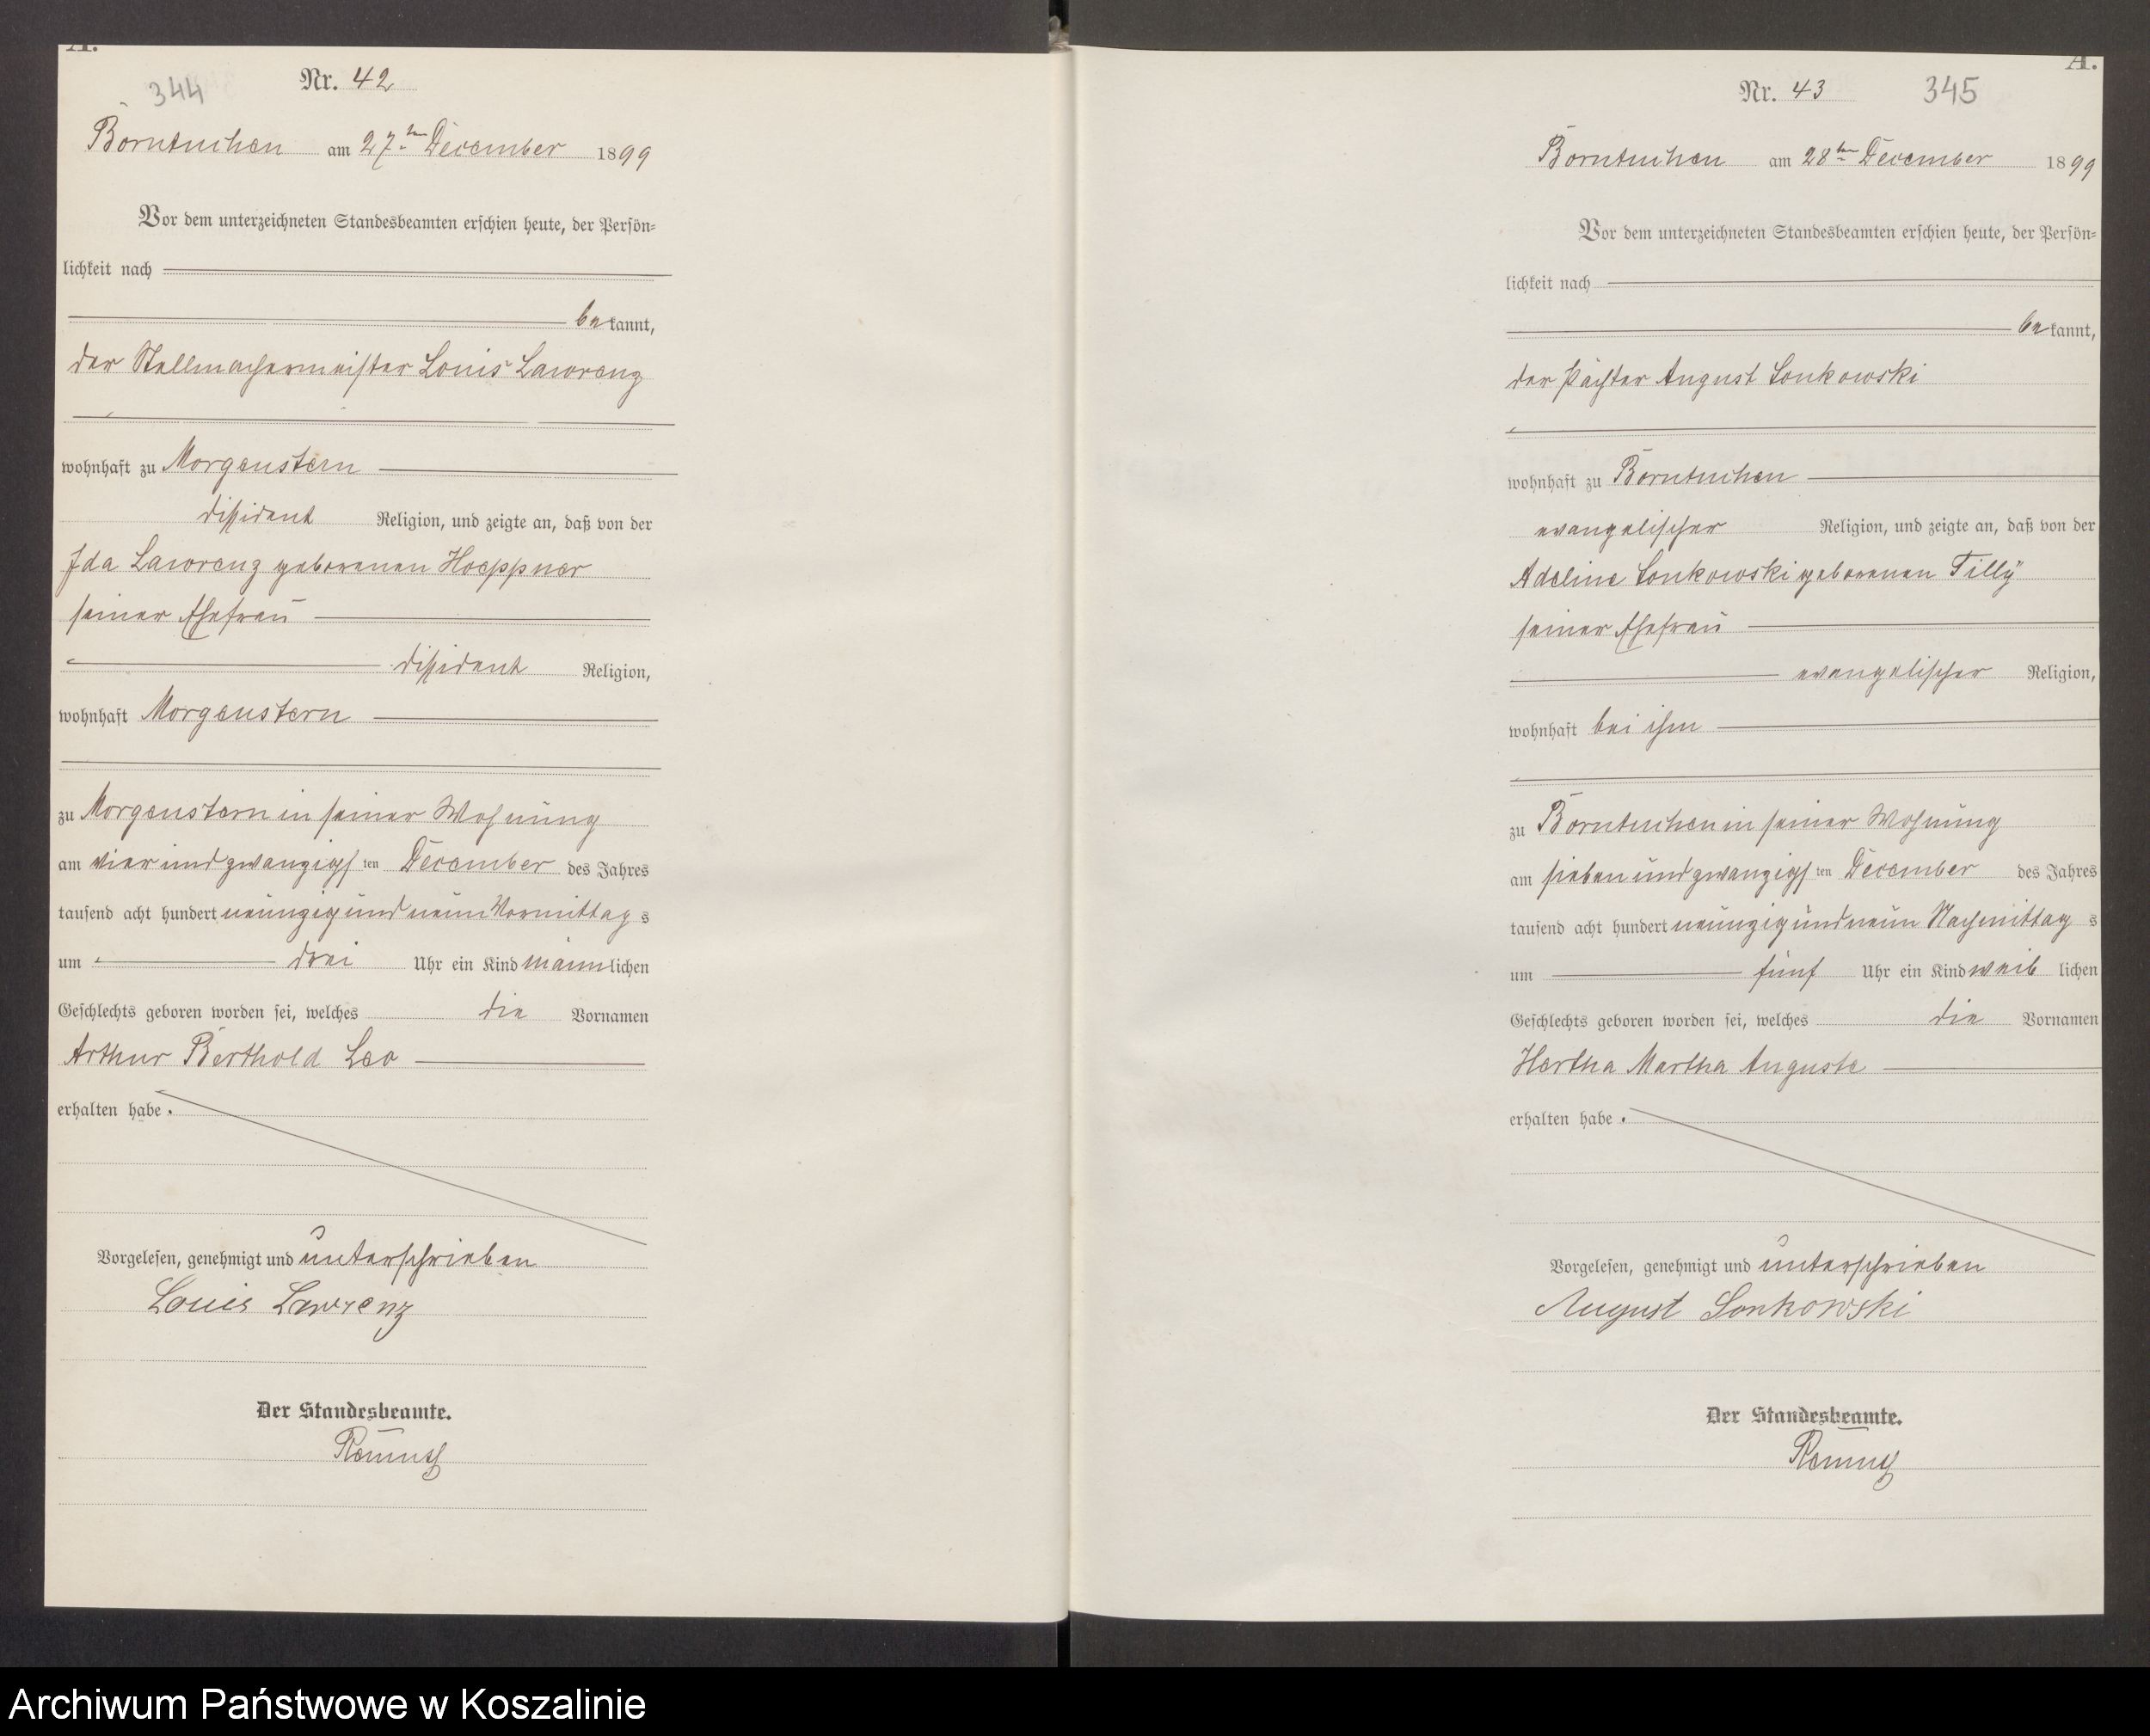 A.
344
Nr. 42
Borntuchen am 27ten December 1899
Vor dem unterzeichneten Standesbeamten erschien heute, der Persön=
lichkeit nach
bekannt,
der Stellmachermeister Louis Lawrenz
wohnhaft zu Morgenstern
dissident Religion, und zeigte an, daß von der
Ida Lawrenz geborenen Hoeppner
seiner Ehefrau
dissident Religion,
wohnhaft Morgenstern
zu Morgenstern in seiner Wohnung
am vier und zwanzigsten December des Jahres
tausend acht hundert neunzig und neun Vormittags
um drei Uhr ein Kind männlichen
Geschlechts geboren worden sei, welches die Vornamen
Arthur Berthold Leo
erhalten habe.
Vorgelesen, genehmigt und unterschrieben
Louis Lawrenz
Der Standesbeamte.
A.
Nr. 43
345
Borntuchen am 28ten December 1899
Vor dem unterzeichneten Standesbeamten erschien heute, der Persön=
lichkeit nach
bekannt,
der Pächter August Sonkowski
wohnhaft zu Borntuchen
evangelischer Religion, und zeigte an, daß von der
Adeline Sonkowski geborenen Tilly
seiner Ehefrau
evangelischer Religion,
wohnhaft bei ihm
zu Borntuchen in seiner Wohnung
am sieben und zwanzigsten December des Jahres
tausend acht hundert neunzig und neun Nachmittags
um fünf Uhr ein Kind weiblichen
Geschlechts geboren worden sei, welches die Vornamen
Hertha Martha Auguste
erhalten habe.
Vorgelesen, genehmigt und unterschrieben
August Sonkowski
Der Standesbeamte.
Archiwum Państwowe w Koszalinie